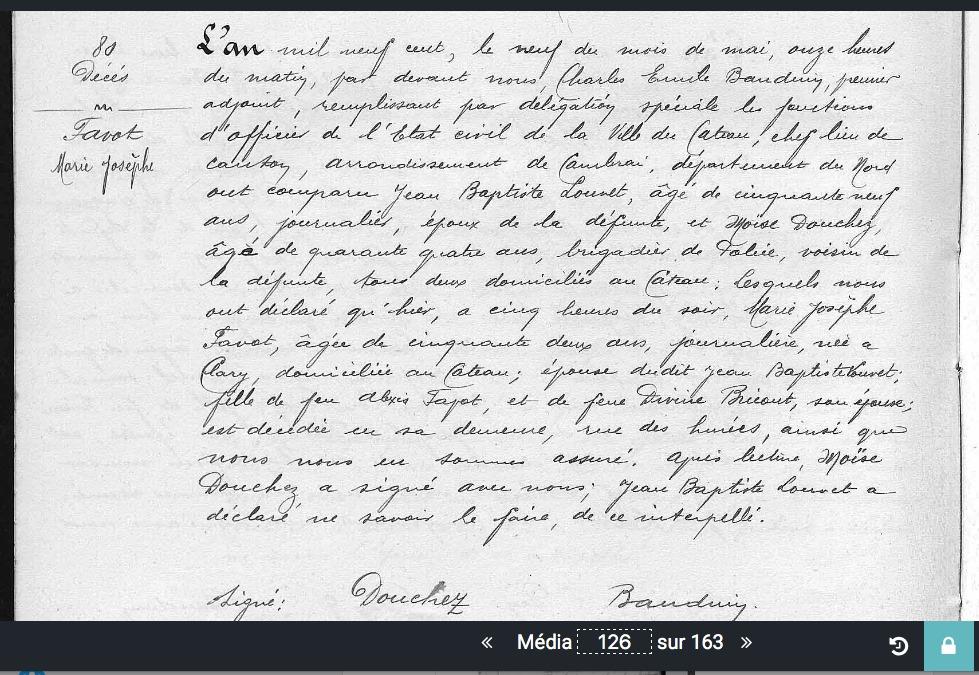 80
Décés
Favot
Marie Josèphe
L'an mil neuf cent, le neuf du mois de mai, onze heures
du matin, par devant nous, Charles Emile Bauduin, premier
adjoint, remplissant par délégation spéciale les fonctions
d'officier de l'Etat civil de la Ville du Cateau, chef lieu de
canton, arrondissement de Cambrai, département du Nord
ont comparu Jean Baptiste Louvet, âgé de cinquante neuf
ans, journalier, époux de la défunte, et Moïse Douchez,
âgé de quarante quatre ans, brigadier de Police, voisin de
la défunte, tous deux domiciliés au Cateau; Lesquels nous
ont déclaré qu'hier, a cinq heures du soir, Marie Josèphe
Favot, âgée de cinquante deux ans, journalière, née a
Clary, domiciliée au Cateau; épouse dudit Jean Baptiste Louvet;
fille de feu Alexis Favot, et de feue Divine Bricout, son épouse;
est décédée en sa demeure, rue des, ainsi que
nous nous en sommes assuré. Après lecture, Moïse
Douchez a signé avec nous; Jean Baptiste Louvet a
déclaré ne savoir le faire, de ce interpellé.
Signé: Douchez Bauduin.
« Média 126 sur 163 »